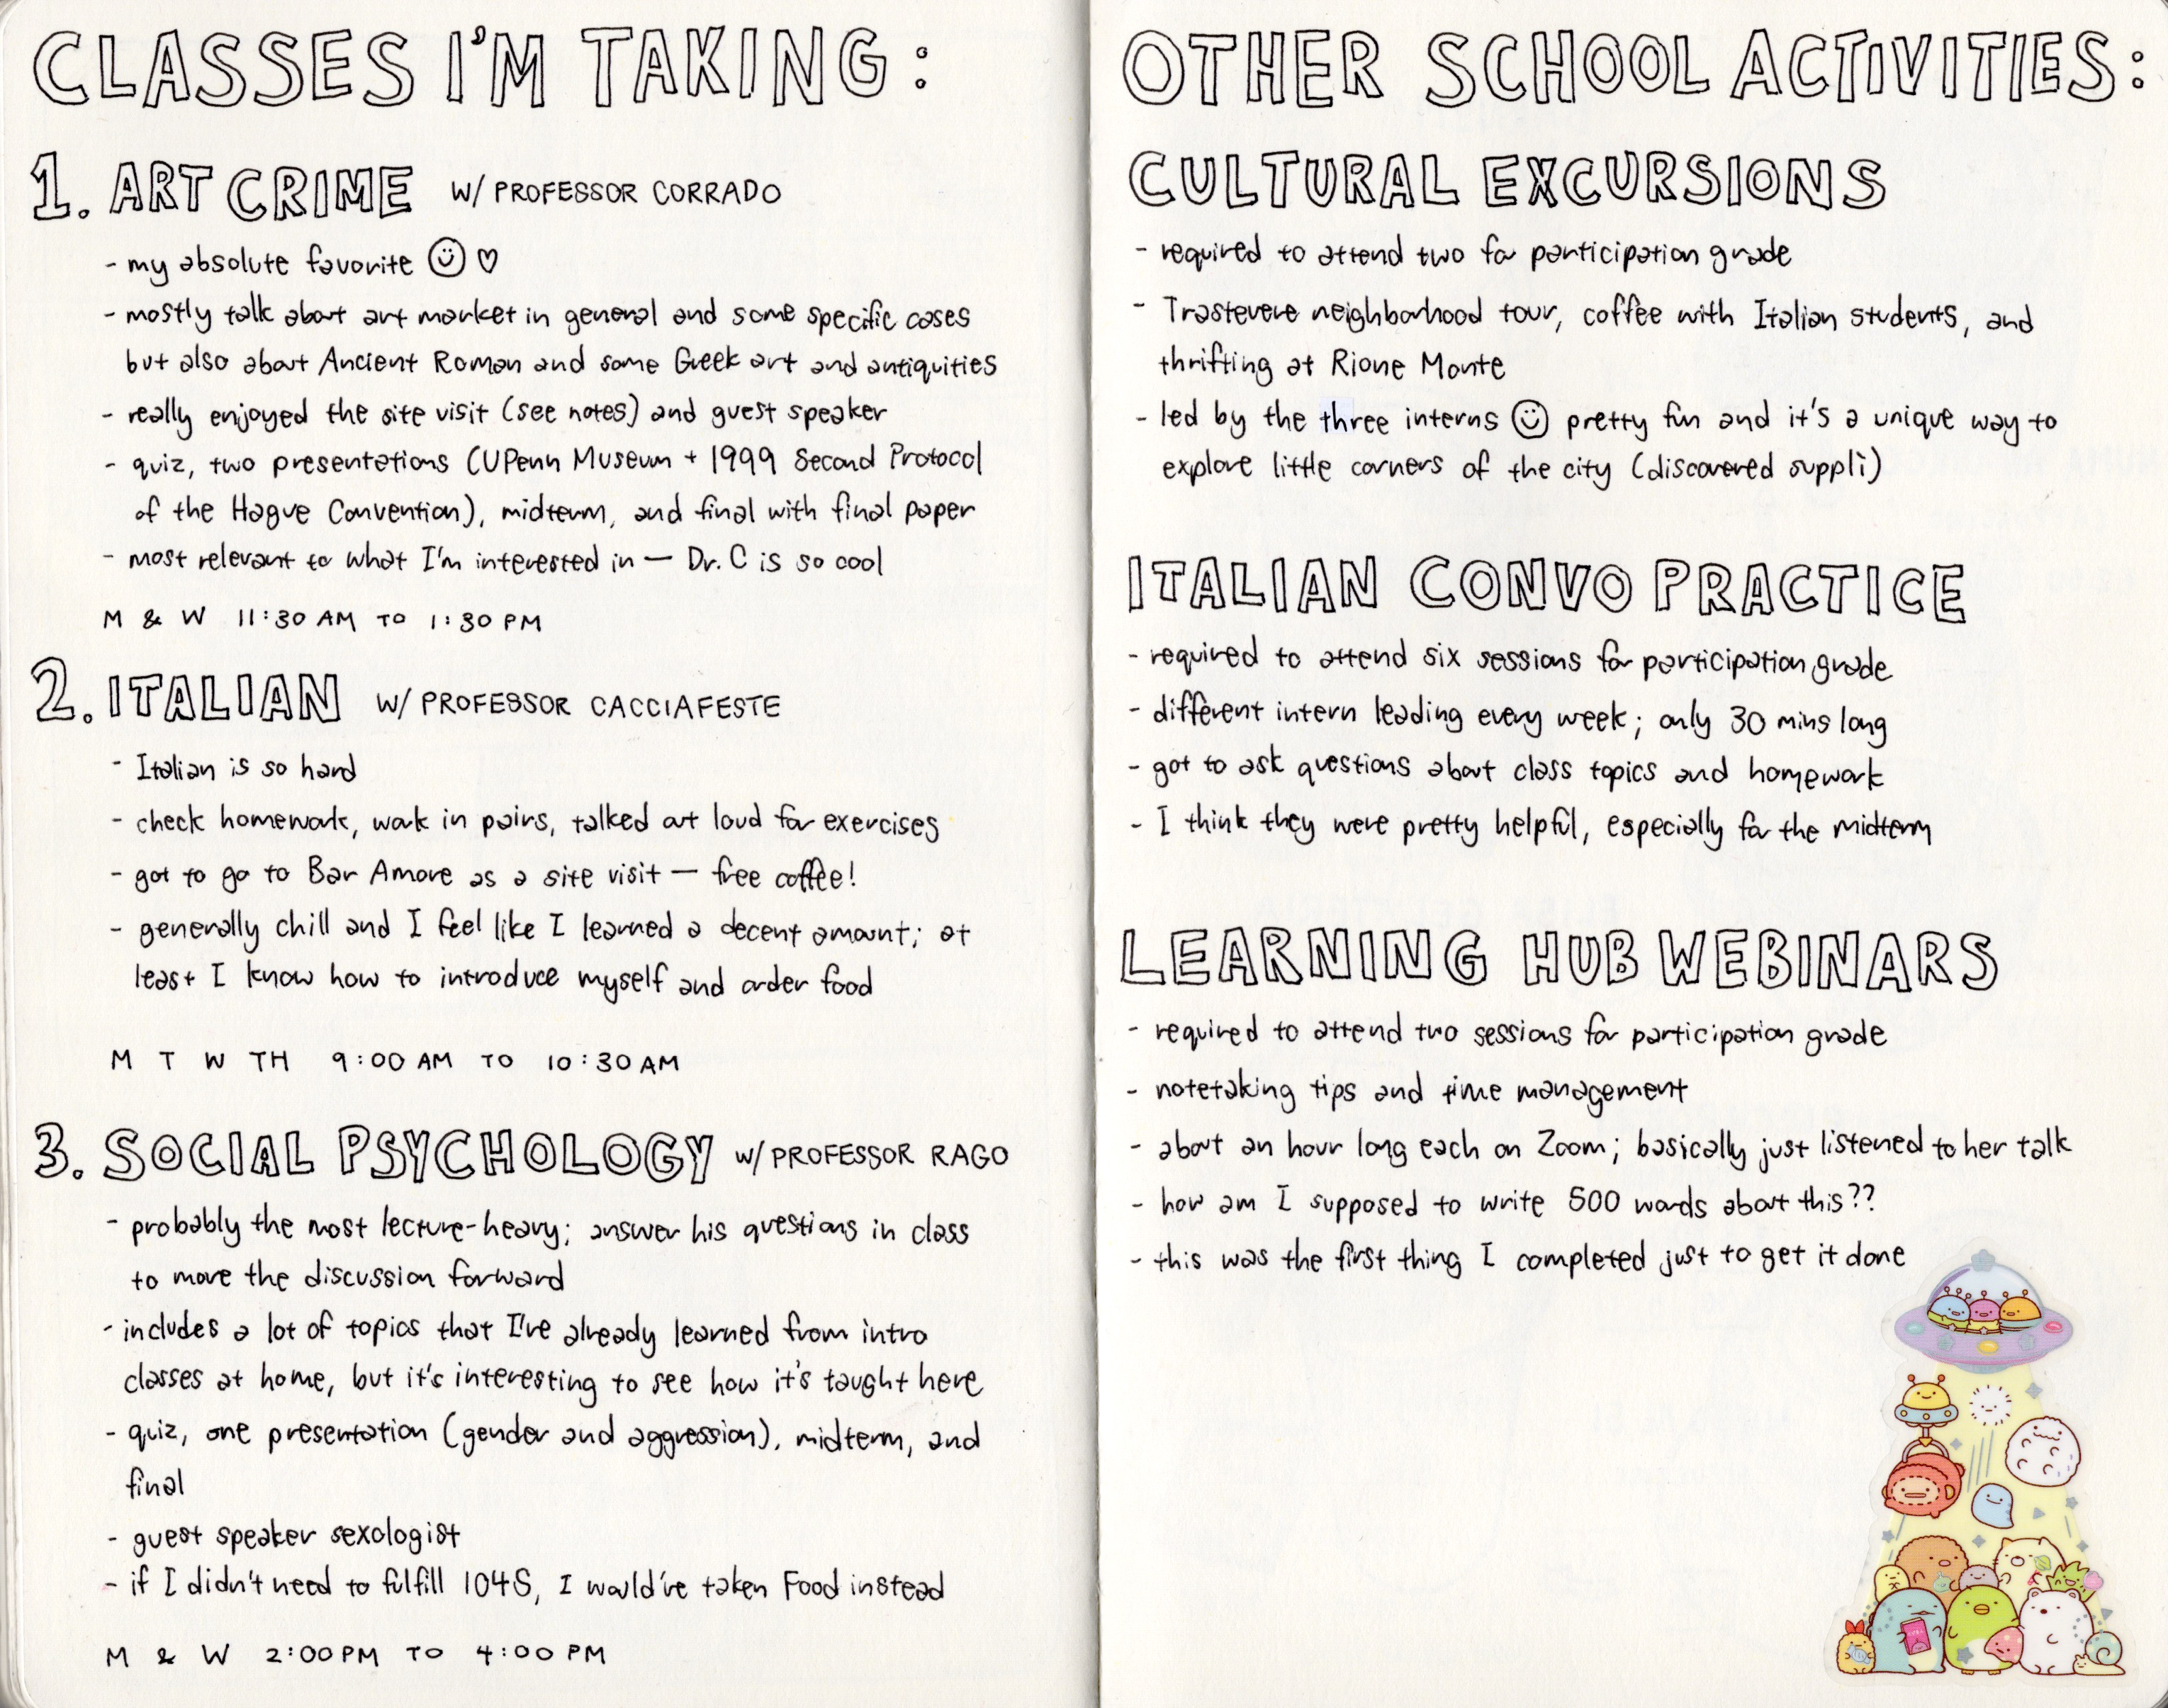 CLASSES I'M TAKING:
1. ART CRIME W/ PROFESSOR CORRADO
- my absolute favorite ☺ ♡
- mostly talk about art market in general and some specific cases
but also about Ancient Roman and some Greek art and antiquities
- really enjoyed the site visit (see notes) and guest speaker
- quiz, two presentations (UPenn Museum + 1999 Second Protocol
of the Hague Convention), midterm, and final with final paper
- most relevant to what I'm interested in — Dr. C is so cool
M & W 11:30 AM TO 1:30 PM
2. ITALIAN W/ PROFESSOR CACCIAFESTE
- Italian is so hard
- check homework, work in pairs, talked out loud for exercises
- got to go to Bar Amore as a site visit — free coffee!
- generally chill and I feel like I learned a decent amount; at
least I know how to introduce myself and order food
M T W TH 9:00 AM TO 10:30 AM
3. SOCIAL PSYCHOLOGY W/ PROFESSOR RAGO
- probably the most lecture-heavy; answer his questions in class
to move the discussion forward
- includes a lot of topics that I've already learned from intro
classes at home, but it's interesting to see how it's taught here
- quiz, one presentation (gender and aggression), midterm, and
final
- guest speaker sexologist
- if I didn't need to fulfill 104S, I would've taken Food instead
M & W 2:00 PM TO 4:00 PM
OTHER SCHOOL ACTIVITIES:
CULTURAL EXCURSIONS
- required to attend two for participation grade
- Trastevere neighborhood tour, coffee with Italian students, and
thrifting at Rione Monte
- led by the three interns ☺ pretty fun and it's a unique way to
explore little corners of the city (discovered supplì)
ITALIAN CONVO PRACTICE
- required to attend six sessions for participation grade
- different intern leading every week; only 30 mins long
- got to ask questions about class topics and homework
- I think they were pretty helpful, especially for the midterm
LEARNING HUB WEBINARS
- required to attend two sessions for participation grade
- notetaking tips and time management
- about an hour long each on Zoom; basically just listened to her talk
- how am I supposed to write 500 words about this??
- this was the first thing I completed just to get it done